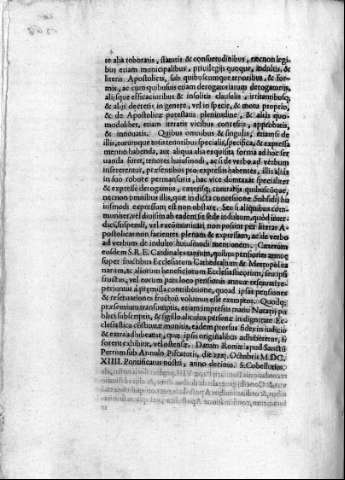 te alia roboratis, statutis et consuetudinibus, necnon legi
bus etiam municipalibus, privilegijs quoque, indultis, &
literis Apostolicis, sub quibuscunque tenoribus, & for-
mis, ac cum quibusuis etiam derogatoriarum derogatorijs,
alijsque efficacioribus & insolitis clausulis, irritantibusq;
& alijs decretis in genere, vel in specie, & motu proprio,
& de Apostolicæ potestatis plenitudine, & alias quo-
modolibet, etiam iteratis vicibus concessis, approbatis,
& innovatis. Quibus omnibus & singulis, etiamsi de
illis, eorumque totis tenoribus specialis, specifica, & expressa
mentio habenda, aut aliqua alia exquisita forma ad hoc ser
uanda foret, tenores huiusmodi, ac si de verbo ad verbum
insererentur, præsentibus pro expressis habentes, illis aliàs
in suo robore permansuris, hac vice dumtaxat specialiter
& expressè derogamus, cæterisq; contrarijs quibuscunque,
necnon omnibus illis, quæ in dicta concessione Subsidij hu
iusmodi expressum est non obstare. Seu si aliquibus com
muniter, vel diuisim ab eadem sit sede indultum, quòd inter-
dici, suspendi, vel excommunicari, non possint per literas A-
postolicas non facientes plenam & expressam, ac de verbo
ad verbum de indulto huiusmodi mentionem. Cæterum
eosdem S.R.E. Cardinales
super fructibus Ecclesiarum Cathedralium & Metropolita
narum, & aliorum beneficiorum Ecclesiasticorum, seu ipsi
præmissa contributione, quoad ipsas pensiones
& reseruationes fructuum volumus esse exemptos. Quodq;
præsentium transumptis, etiam impressis manu Notarij pu
blici subscriptis, & sigillo alicuius personæ in dignitate Ec
clesiastica constitutæ munitis, eadem prorsus fides in iudicio
& extra adhibeatur, quæ ipsis originalibus adhiberetur, si
forent exhibitæ, vel ostensæ. Datum Romæ apud Sanctū
Petrum sub Annulo Piscatoris, die xxx. Octobris M.DC.
XIIII. Pontificatus nostri, anno decimo. S. Cobellutius.